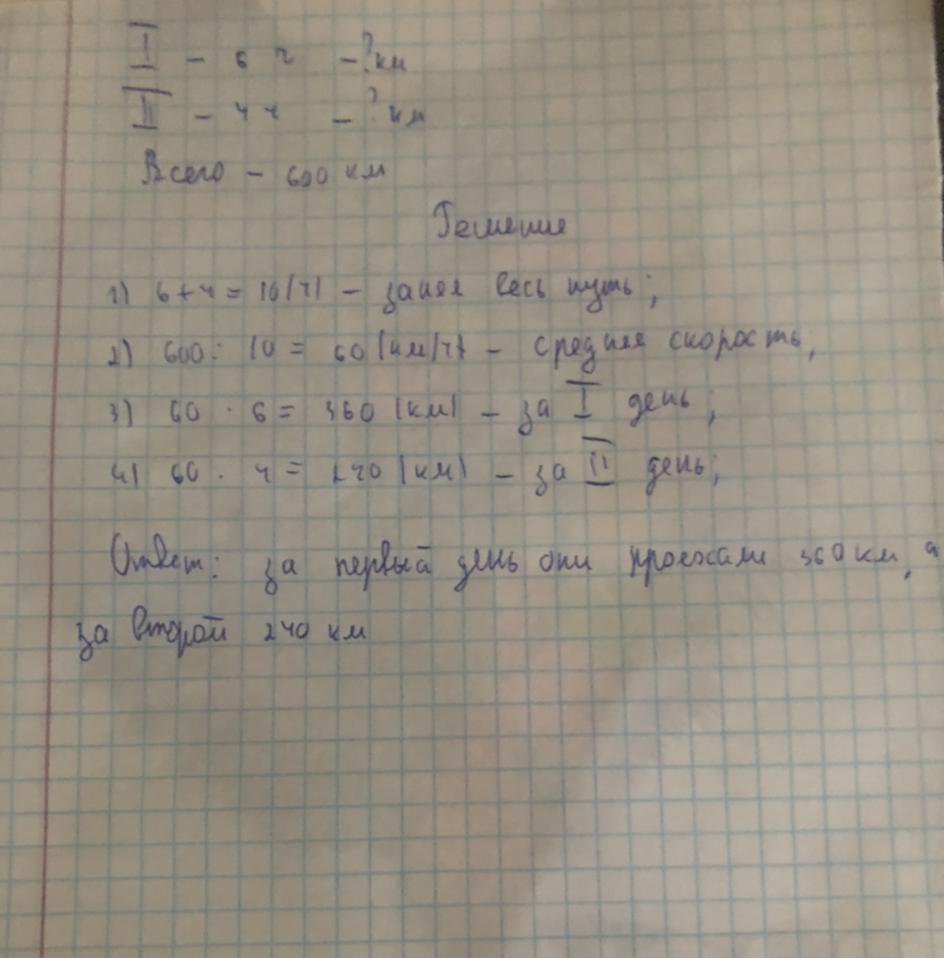 I - 6 ч - ? км
II - 4 ч - ? км
Всего - 600 км
Решение
1) 6 + 4 = 10 (ч) - занял весь путь;
2) 600 : 10 = 60 (км/ч) - средняя скорость;
3) 60 · 6 = 360 (км) - за I день;
4) 60 · 4 = 240 (км) - за II день;
Ответ: за первый день они проехали 360 км, а
за второй 240 км